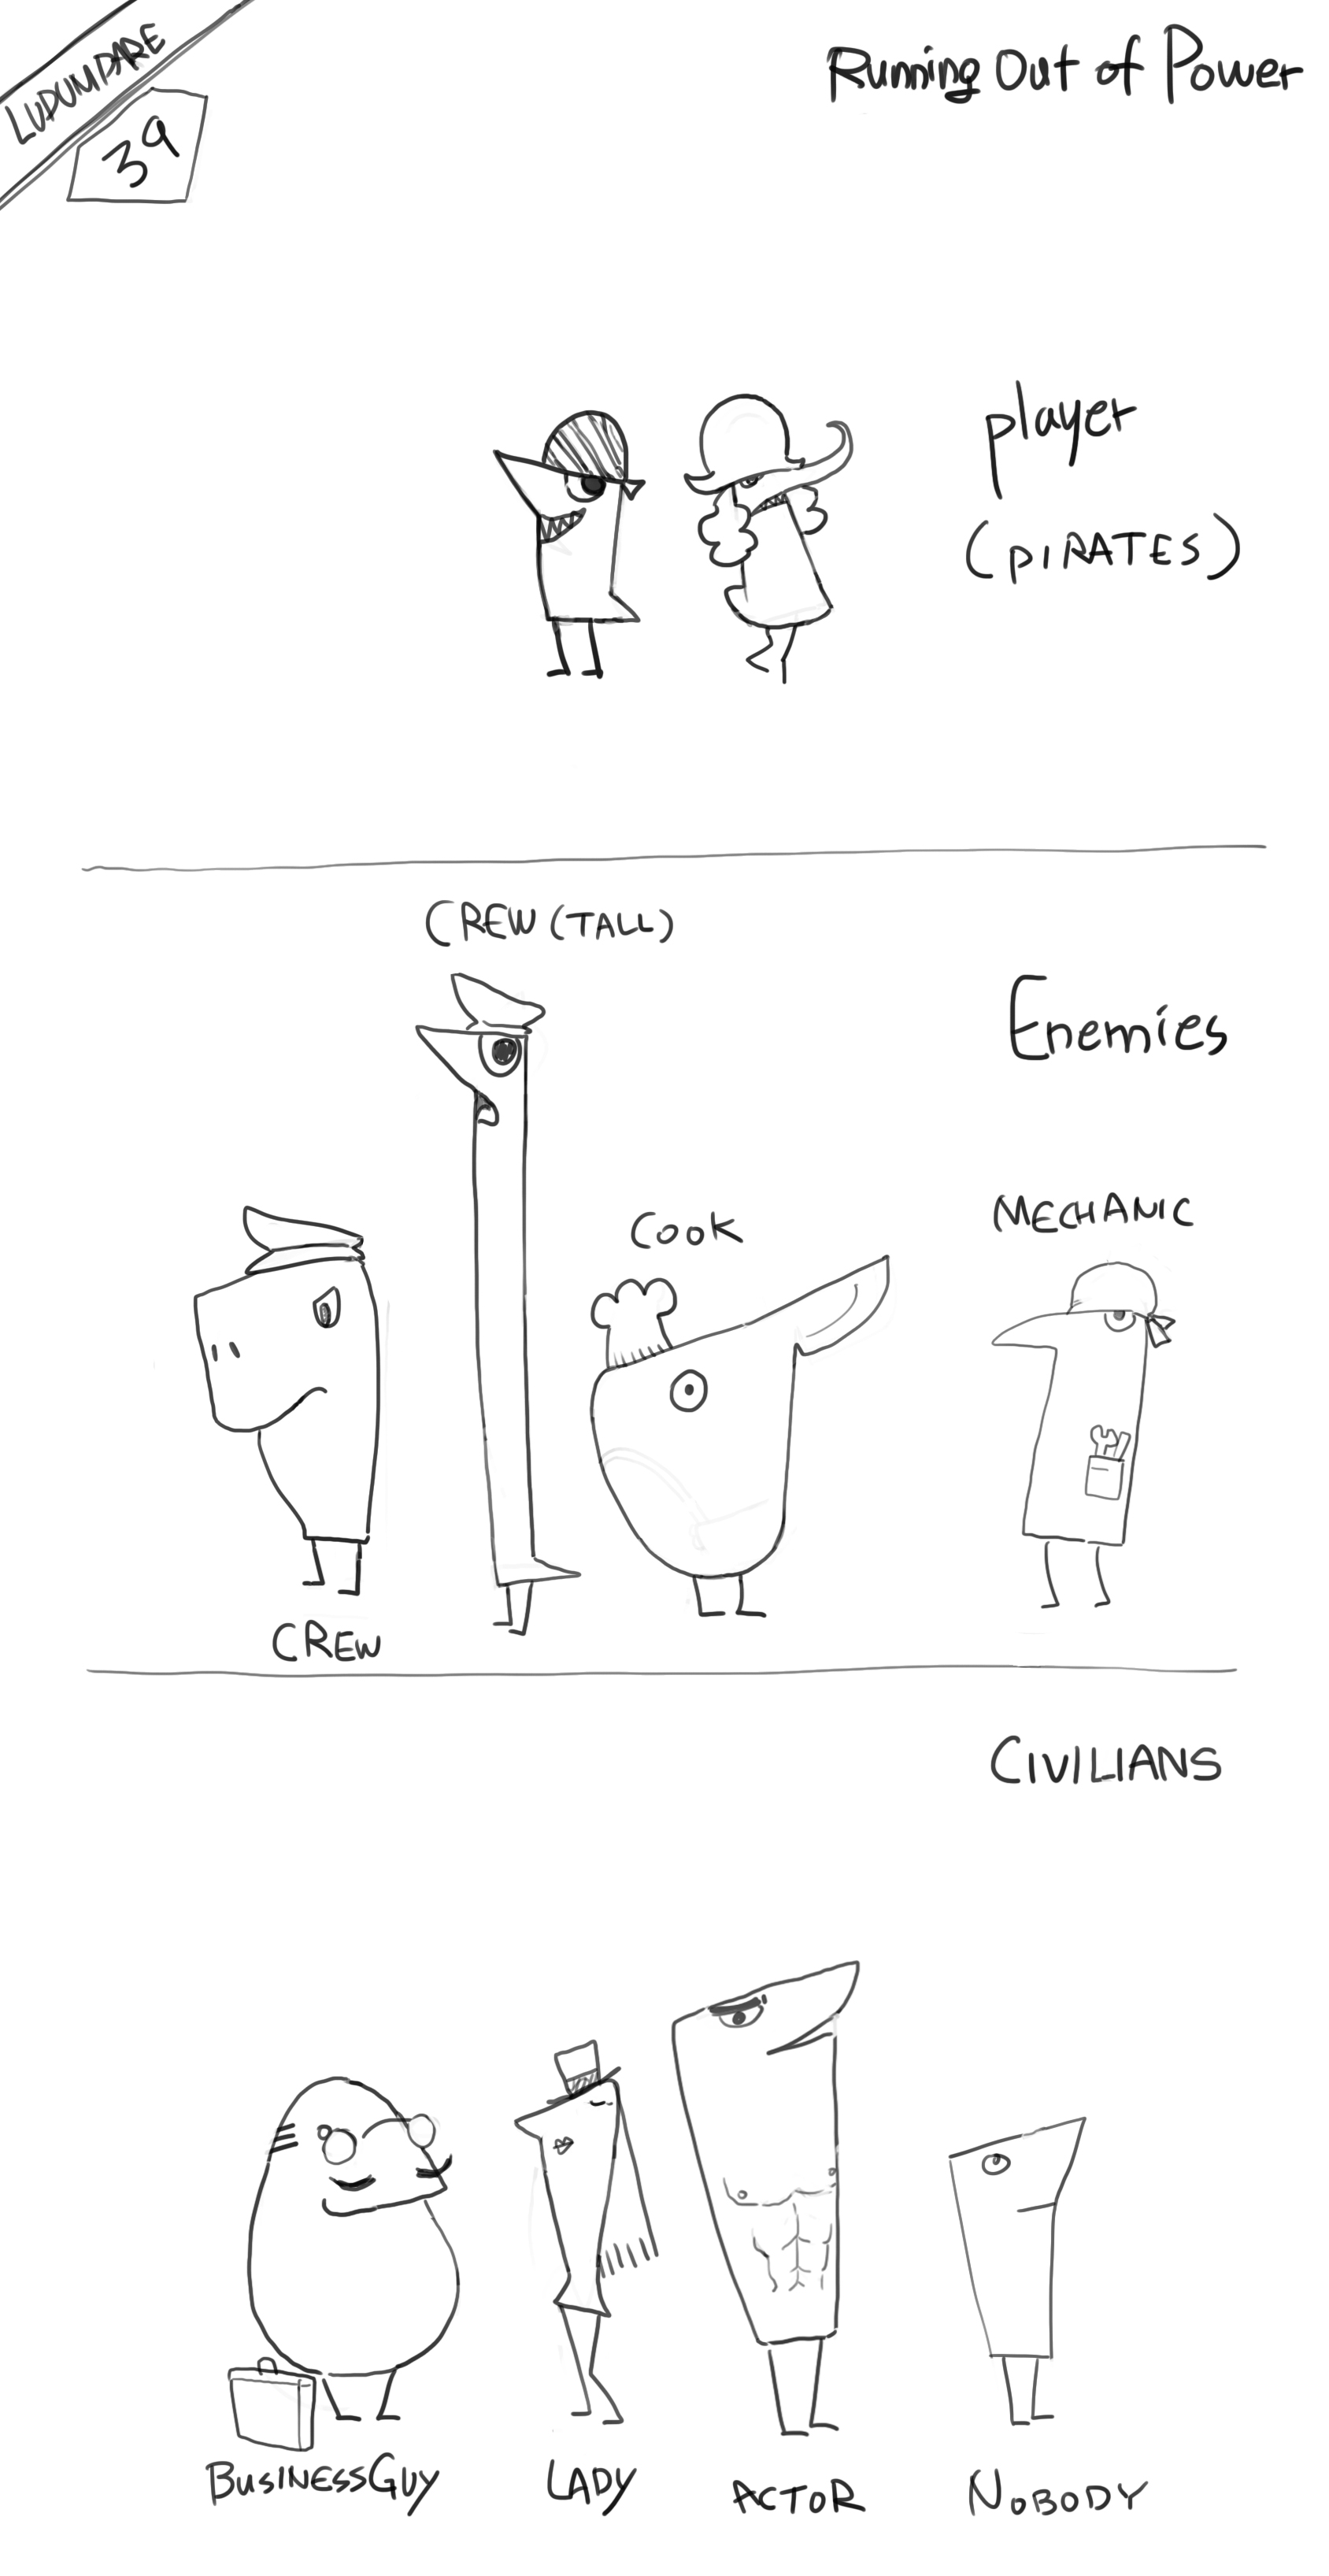 LUDUMDARE
39
Running Out of Power
player
(PIRATES)
CREW (TALL)
Enemies
MECHANIC
COOK
CREW
CIVILIANS
BUSINESSGUY
LADY
ACTOR
NOBODY